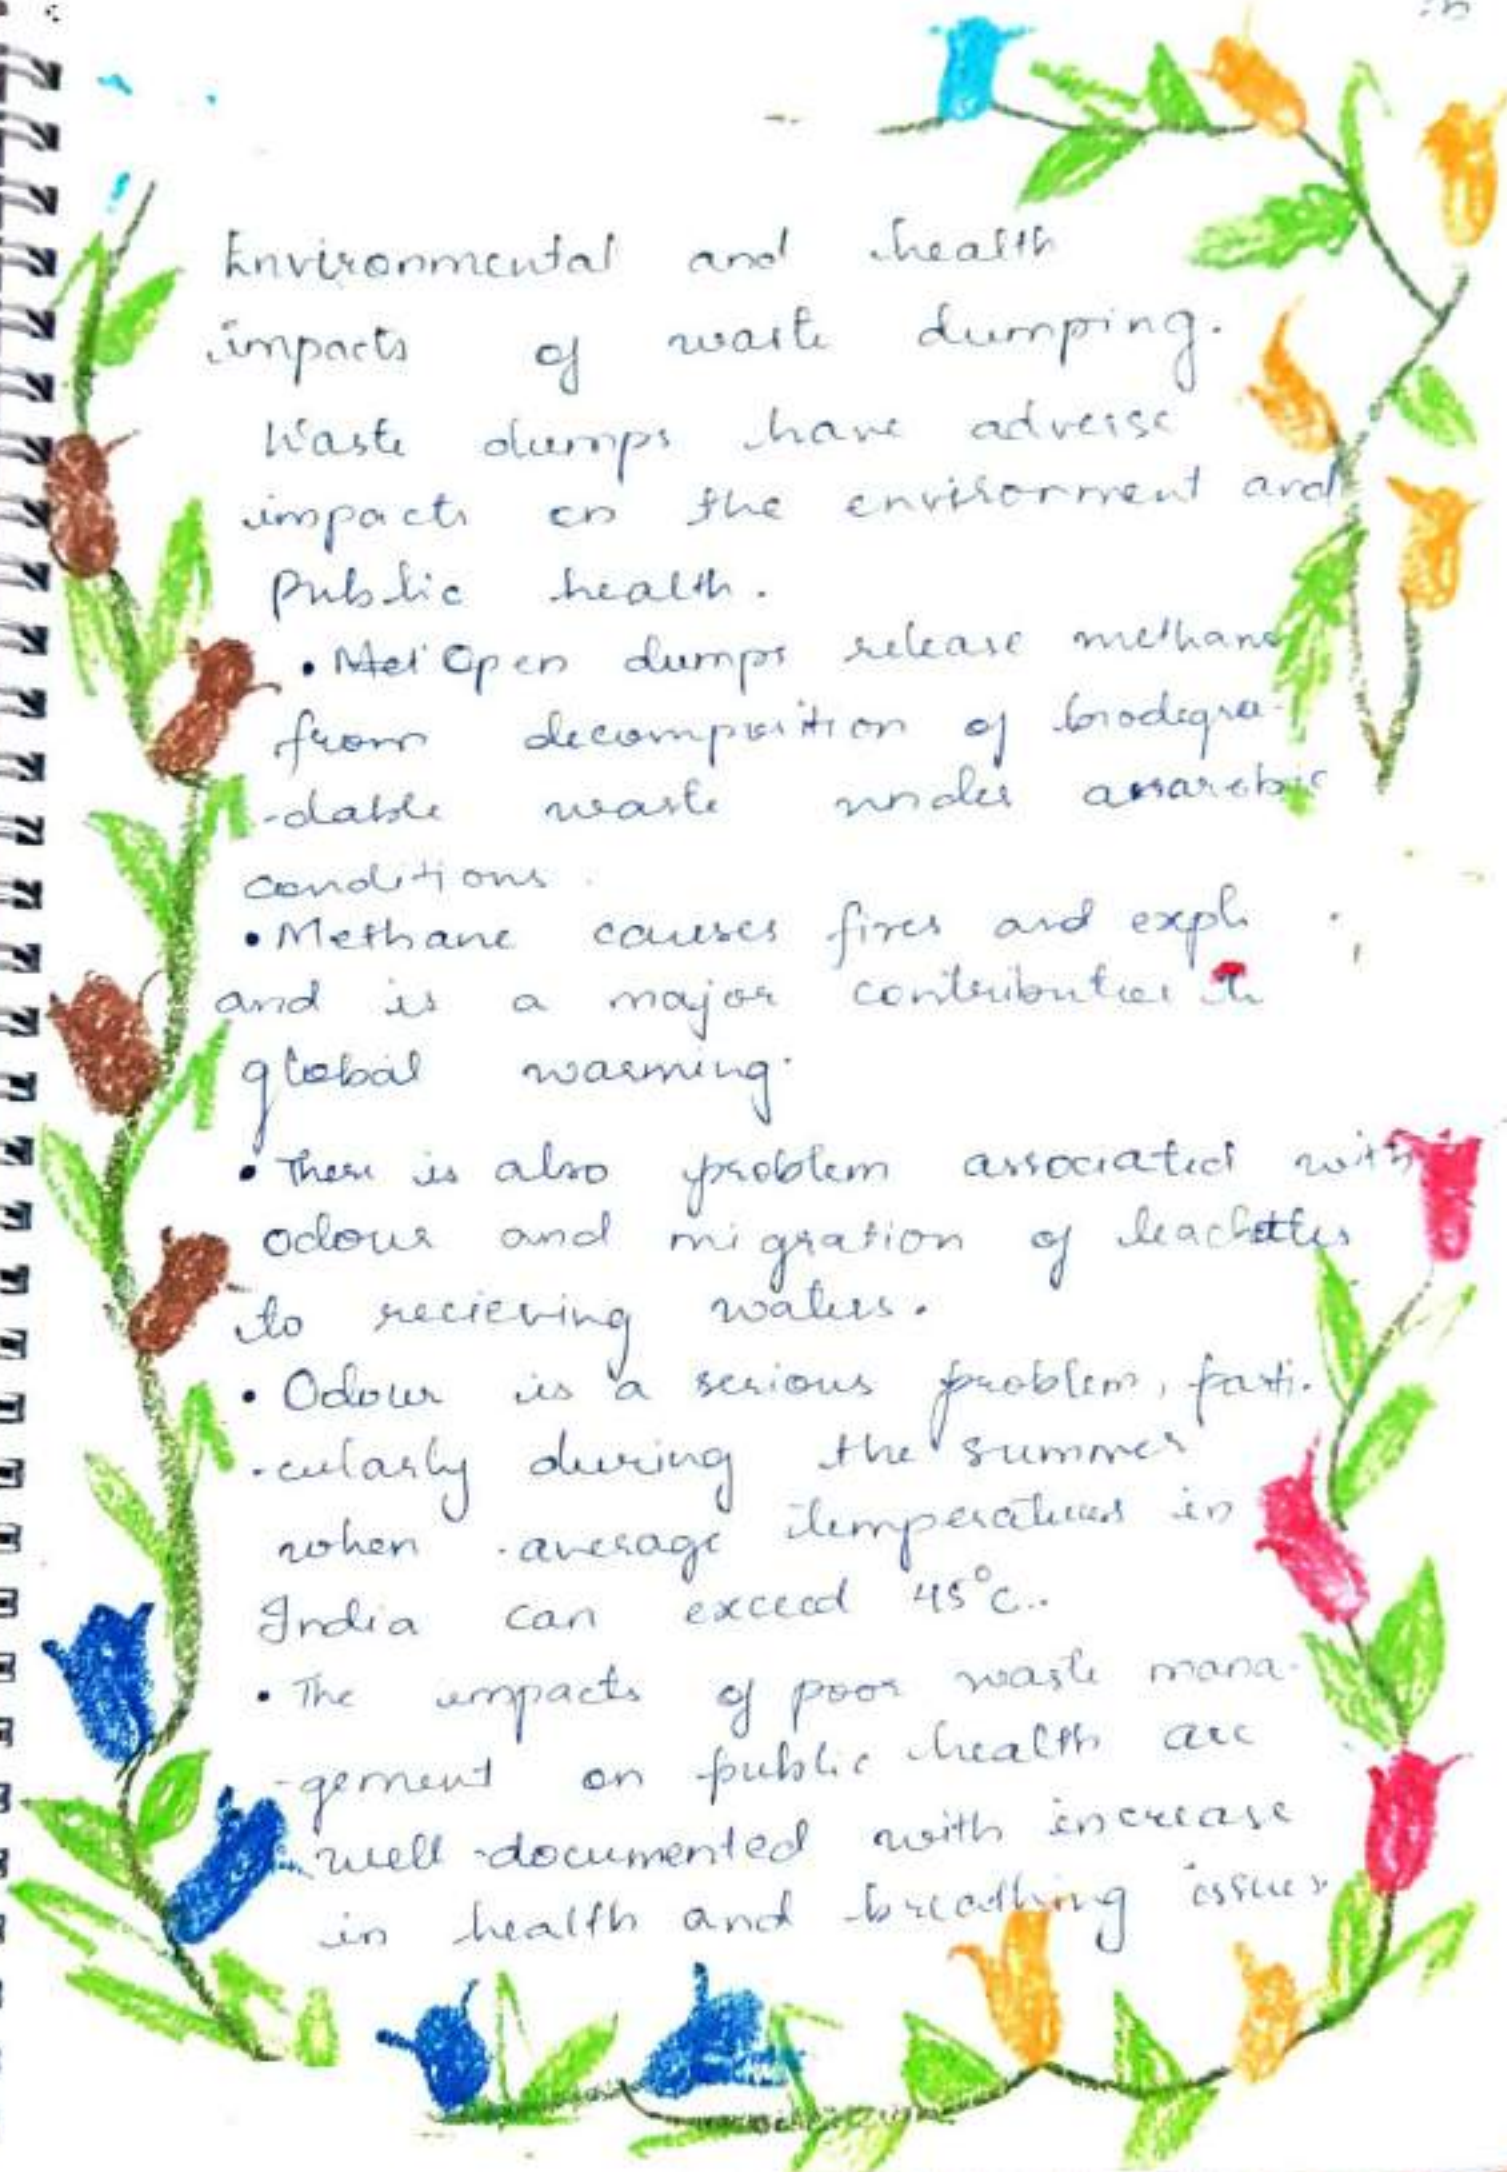 in
Environmental and health
impacts of waste dumping.
Waste dumps have adverse
impacts on the environment and
Public health.
• Met Open dumps release methane
from decomposition of biodegra-
-dable waste under anarobic
conditions.
• Methane causes fires and expl
and is a major contributer to
global warming.
• There is also problem associated with
odour and migration of
to recieving waters.
• Odour is a serious problem, parti-
-cularly during the summer
when average temperatures in
India can exceed 45°c..
• The impacts of poor waste mana-
-gement on public health are
well documented with increase
in health and breathing issues